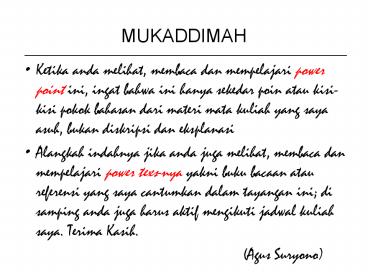 MUKADDIMAH
• Ketika anda melihat, membaca dan mempelajari power
point ini, ingat bahwa ini hanya sekedar poin atau kisi-
kisi pokok bahasan dari materi mata kuliah yang saya
asuh, bukan diskripsi dan eksplanasi
• Alangkah indahnya jika anda juga melihat, membaca dan
mempelajari power texs-nya yakni buku bacaan atau
referensi yang saya cantumkan dalam tayangan ini; di
samping anda juga harus aktif mengikuti jadwal kuliah
saya. Terima Kasih.
(Agus Suryono)